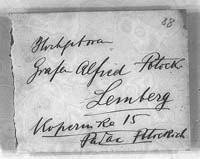 88
Hochgeboren
Grafen Alfred Potocki
Lemberg
Kopernika 15
Pałac Potockich